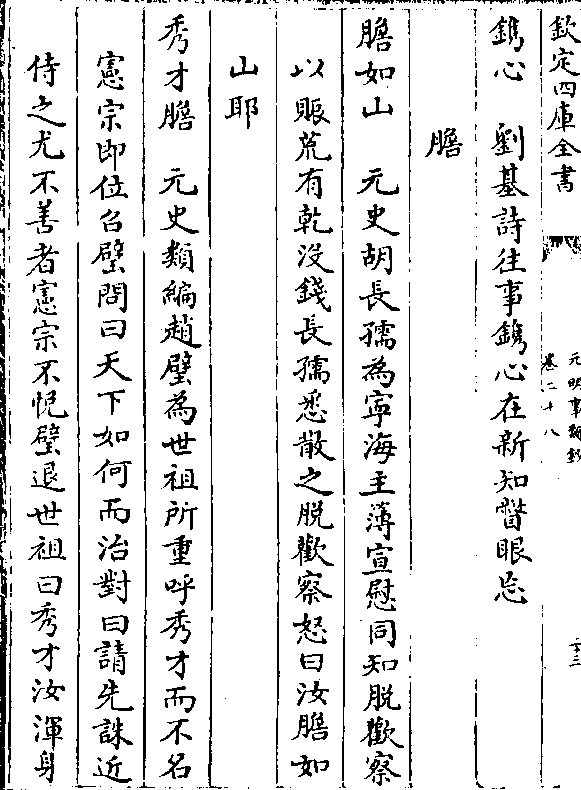 欽定四庫全書
元明事類鈔
卷二十八
十三
鐫心　劉基詩往事鐫心在新知瞥眼忘
膽
膽如山　元史胡長孺為寧海主薄宣慰同知脱歡察
以賑荒有乾没錢長孺悉散之脱歡察怒曰汝膽如
山耶
秀才膽　元史類編趙璧為世祖所重呼秀才而不名
憲宗即位召璧問曰天下如何而治對曰請先誅近
侍之尤不善者憲宗不悦璧退世祖曰秀才汝渾身